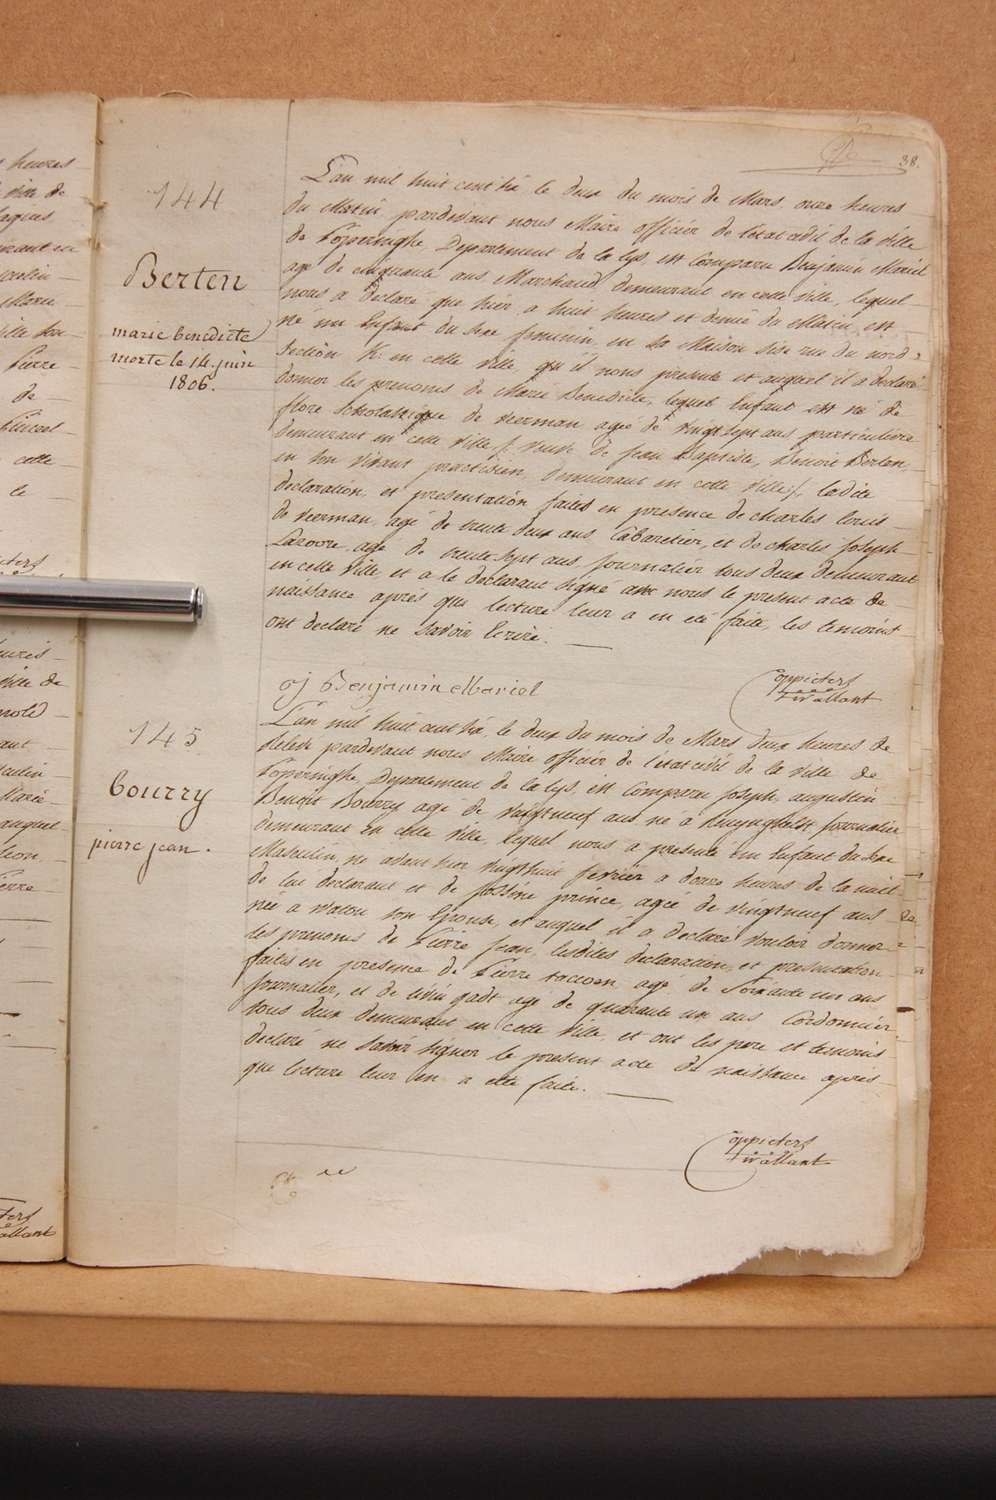 38.
144
Berten
marie benedicte
morte le 14 juin
1806.
L'an mil huit cent six le deux du mois de Mars onze heures
du Matin pardevant nous Maire officier de l'etat civil de la ville
de Poperinghe, Departement de la Lys, est Comparu Benjamin Mariel
agé de cinquante ans Marchand demeurant en cette ville, lequel
nous a declaré que hier a huit heures et demie du Matin, est
né un Enfant du Sexe feminin, en sa Maison sise rue du nord
Section K. en cette ville, qu'il nous presente et auquel il a declaré
donner les prenoms de Marie Benedicte, lequel Enfant est né de
flore Scholastique de veerman agée de vingt sept ans particuliere
demeurant en cette ville /: veuve de jean Baptiste, Benoit Berten
en son vivant practicien, demeurant en cette ville :/, ladite
declaration, et presentation faites en presence de charles louis
de veerman, agé de trente deux ans, Cabaretier, et de charles Joseph
agé de trente sept ans journalier tous deux demeurant
en cette ville et a le declarant signé avec nous le present acte de
naissance après que lecture leur a en été faite, les temoins
ont declaré ne savoir Ecrire.
Benjamin Mariel
Coppieters
Wallant
145
bourry
pierre jean.
L'an mil huit cent six, le deux du mois de Mars deux heures de
releve pardevant nous Maire officier de l'etat civil de la ville de
Poperinghe, Departement de la Lys, est Comparu Joseph, augustin
Benoit Bourry agé de vingtneuf ans né a journalier
demeurant en cette ville, lequel nous a presenté un Enfant du Sexe
Masculin, né avant hier vingthuit fevrier a douze heures de la nuit
de lui declarant et de prince, agée de vingtneuf ans
née a watou son Epouse, et auquel il a declaré vouloir donner
les prenoms de Pierre Jean, lesdites declaration, et presentation
faites en presence de Pierre agé de Soixante un ans
journalier, et de agé de quarante un ans Cordonnier
tous deux demeurant en cette ville, et ont les pere et temoins
declaré ne savoir signer le present acte de naissance après
que lecture leur en a eté faite.
Coppieters
Wallant